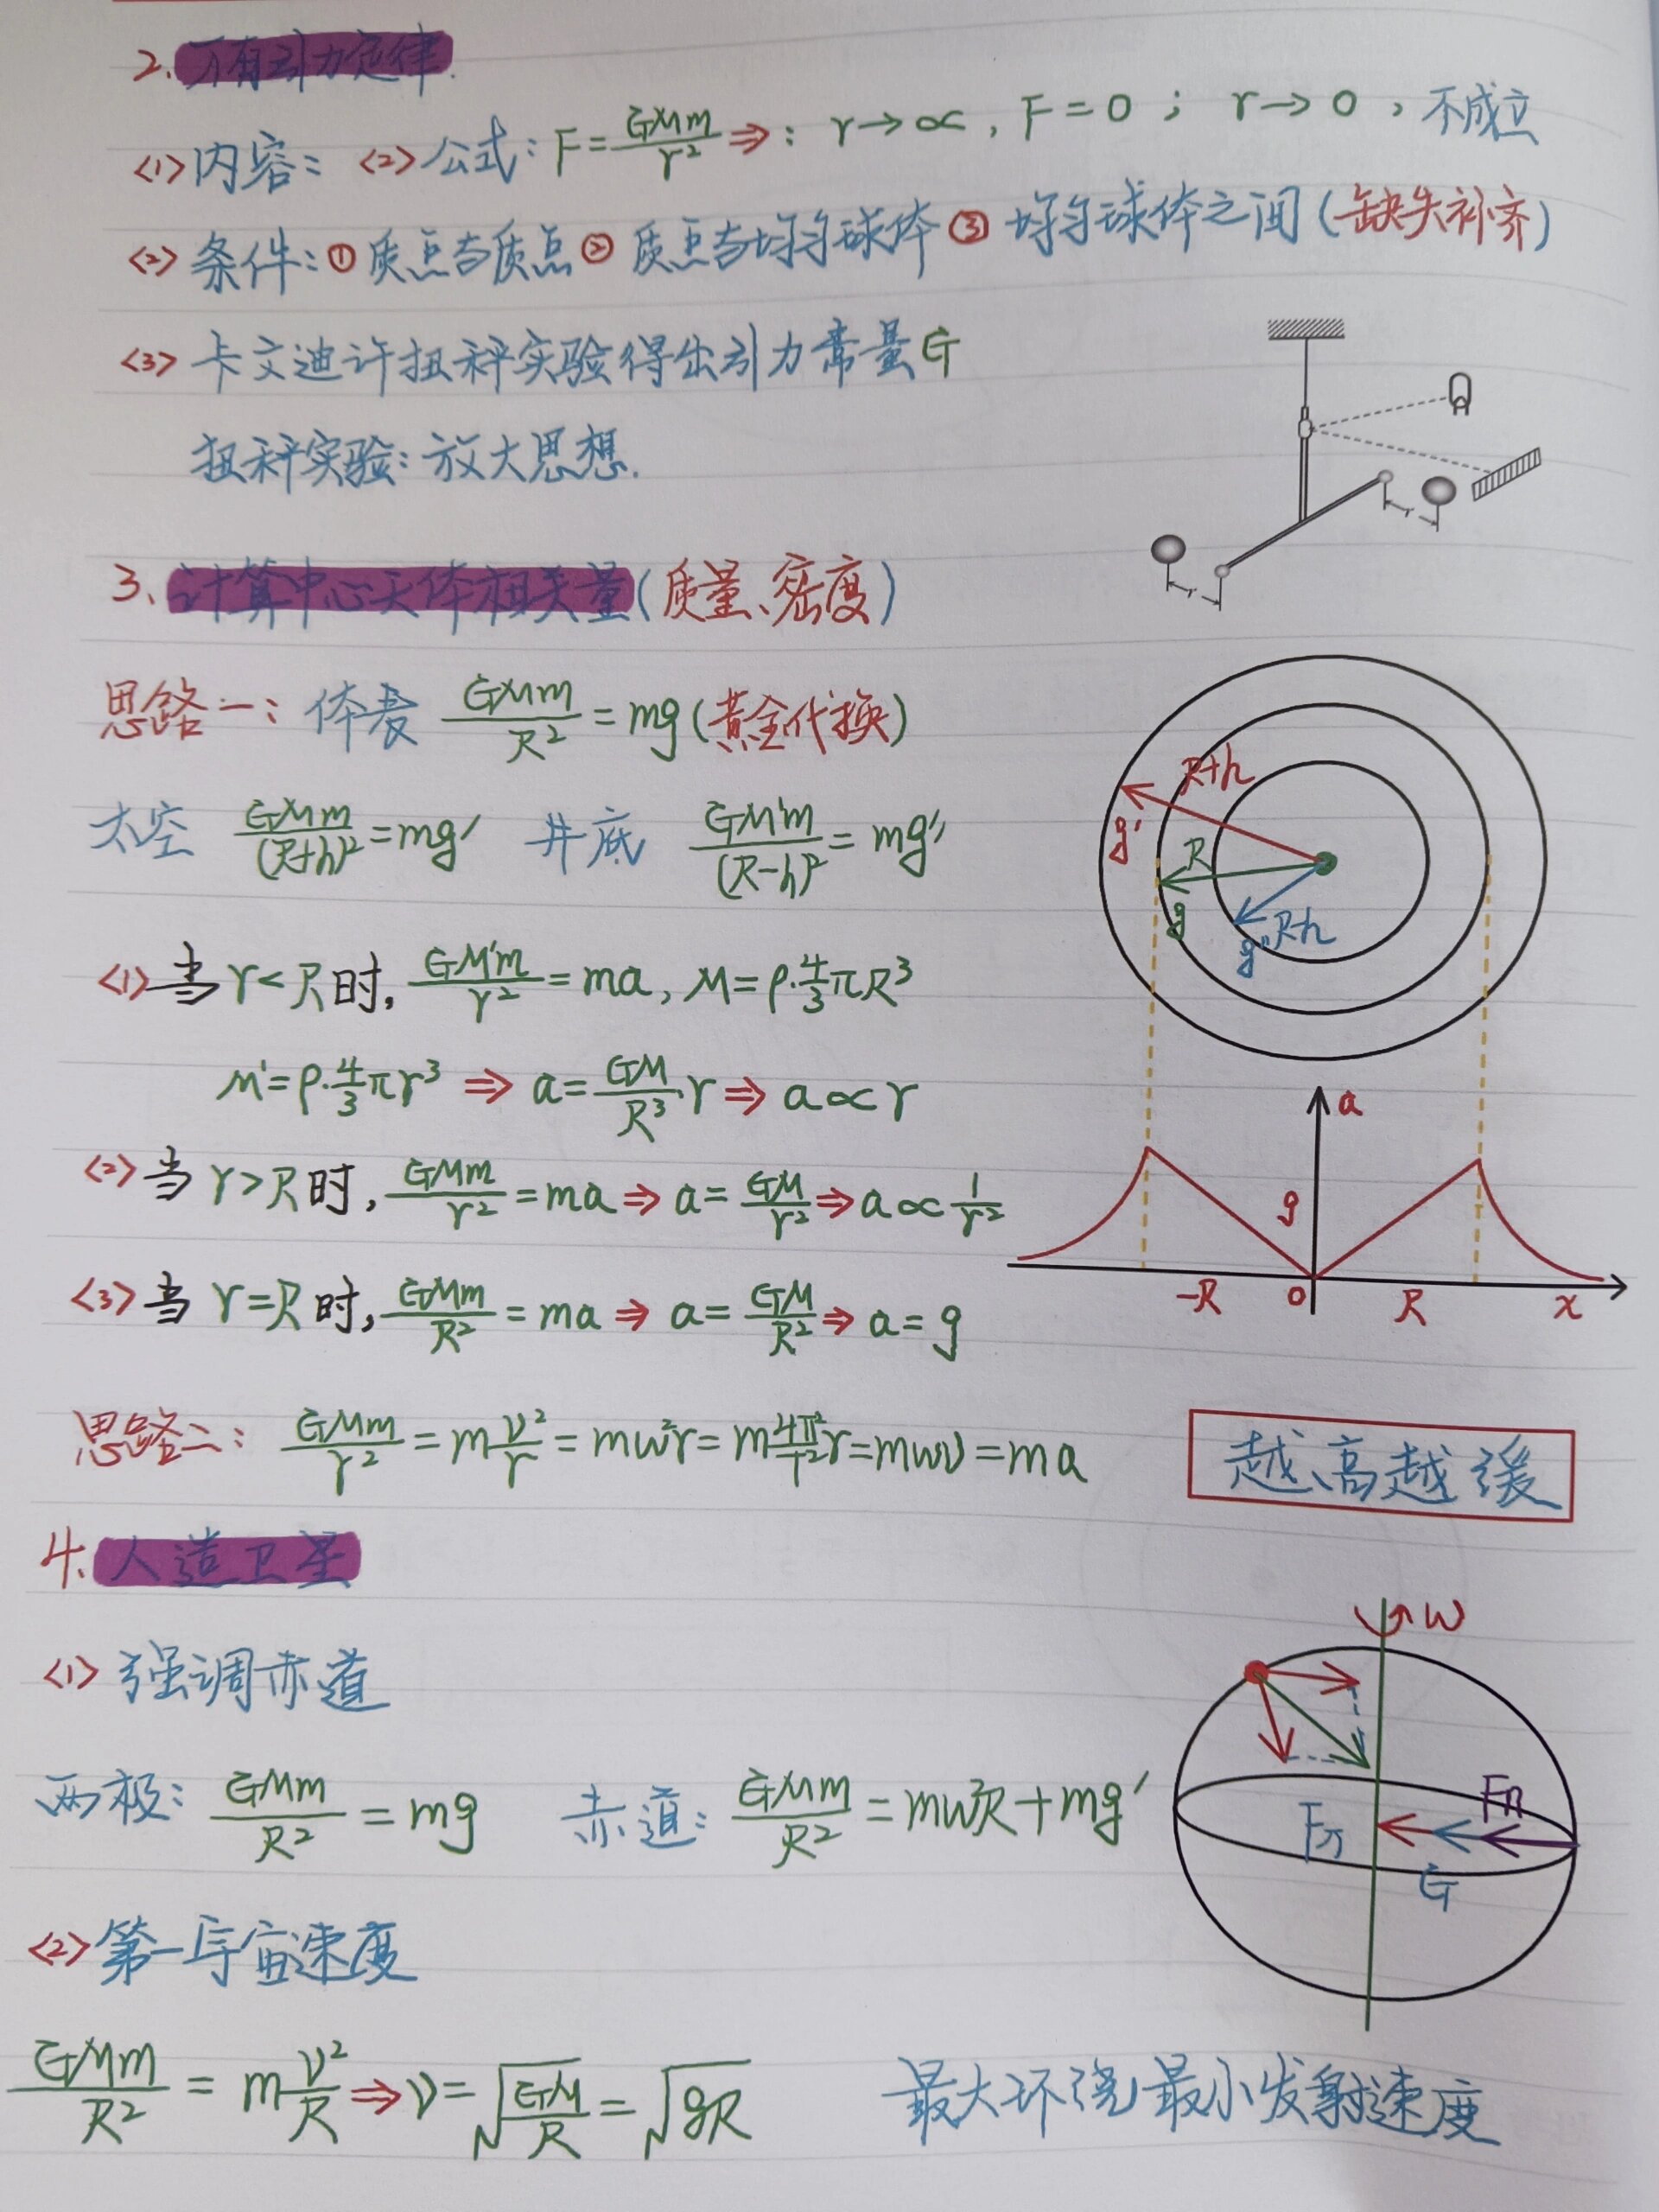 2. 万有引力定律.
<1>内容: <2>公式: F=GMm/r² ⇒: r→∝, F=0; r→0, 不成立
<2>条件: ①质点与质点②质点与均匀球体③均匀球体之间(缺失补齐)
<3>卡文迪许扭秤实验得出引力常量G
扭秤实验: 放大思想.
r
r
3. 计算中心天体相关量(质量、密度)
思路一: 体表 GMm/R²=mg(黄金代换)
太空 GMm/(R+h)²=mg′ 井底 GM′m/(R-h)²=mg″
R+h
g′
R
g
R-h
g″
<1>当r<R时, GM′m/r²=ma, M=ρ·4/3πR³
M′=ρ·4/3πr³ ⇒ a=GM/R³·r ⇒ a∝r
<2>当r>R时, GMm/r²=ma ⇒ a=GM/r² ⇒ a∝1/r²
<3>当r=R时, GMm/R²=ma ⇒ a=GM/R² ⇒ a=g
a
g
-R 0 R x
思路二: GMm/r²=mv²/r=mw²r=m4π²/T²r=mwv=ma
越高越缓
4. 人造卫星
<1>强调赤道
两极: GMm/R²=mg 赤道: GMm/R²=mw²R+mg′
w
F万
Fn
G
<2>第一宇宙速度
GMm/R²=mv²/R ⇒ v=√GM/R=√gR 最大环绕最小发射速度